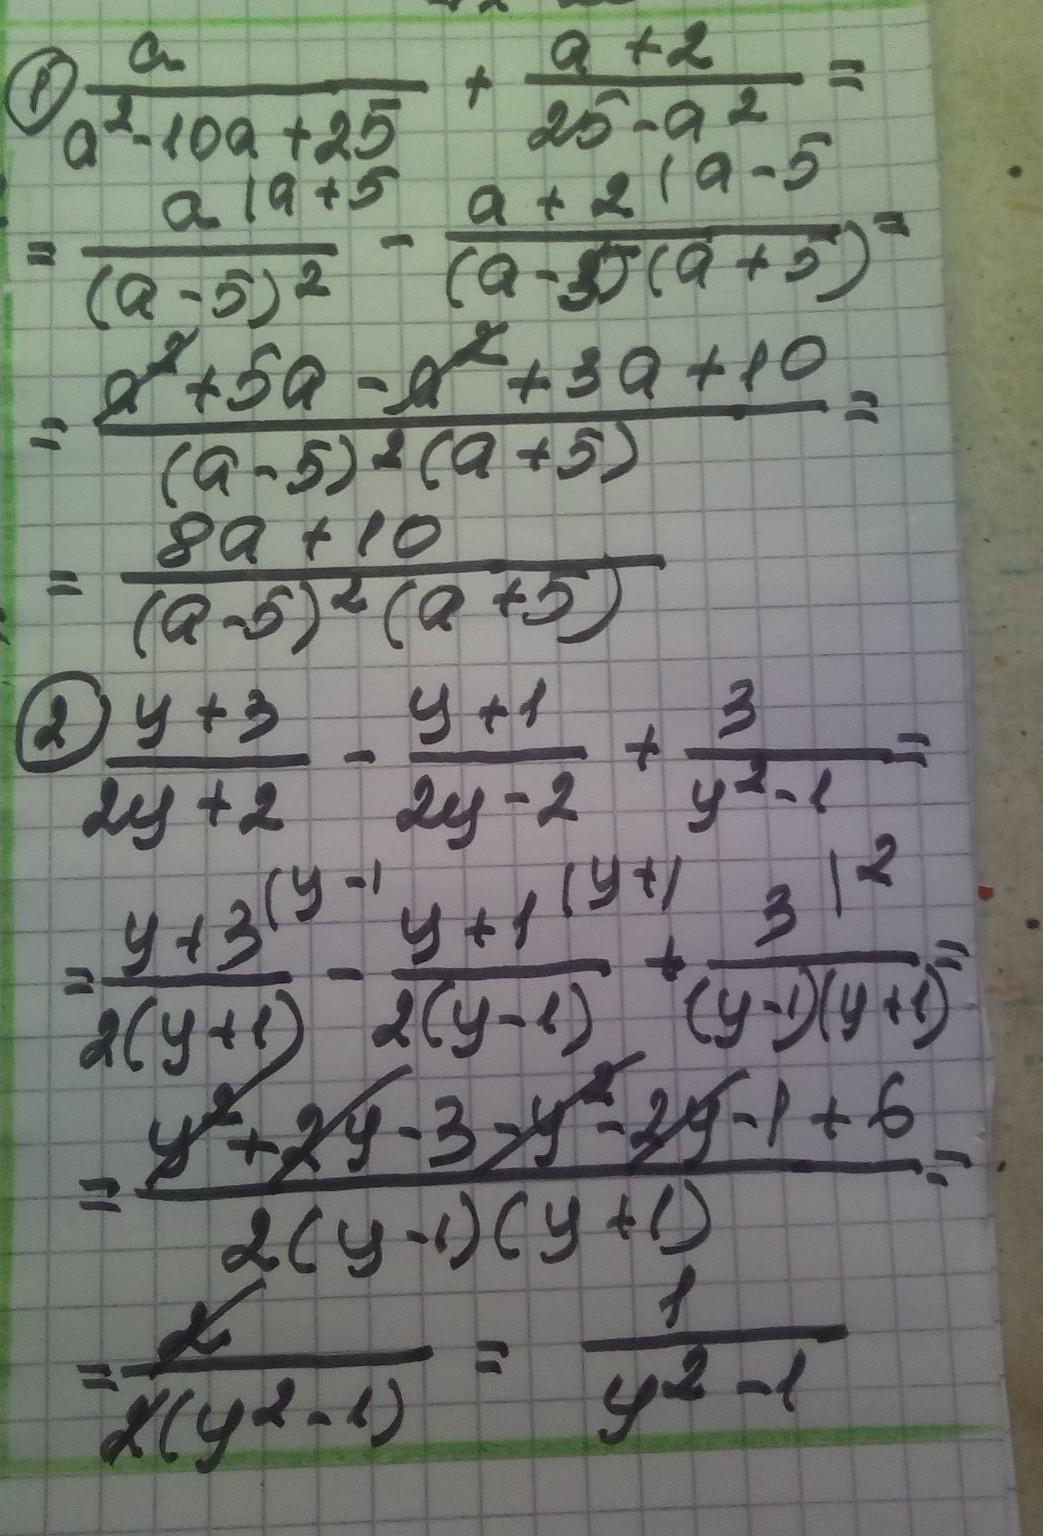 ① a/(a²-10a+25) + (a+2)/(25-a²) =
= a |a+5/(a-5)² - a+2 |a-5/(a-5)(a+5) =
= (a²+5a-a²+3a+10)/((a-5)²(a+5)) =
= (8a+10)/((a-5)²(a+5))
② (y+3)/(2y+2) - (y+1)/(2y-2) + 3/(y²-1) =
= y+3 (y-1/2(y+1) - y+1 (y+1/2(y-1) + 3 |2/(y-1)(y+1) =
= (y²+2y-3-y²-2y-1+6)/(2(y-1)(y+1)) =
= 2/(2(y²-1)) = 1/(y²-1)